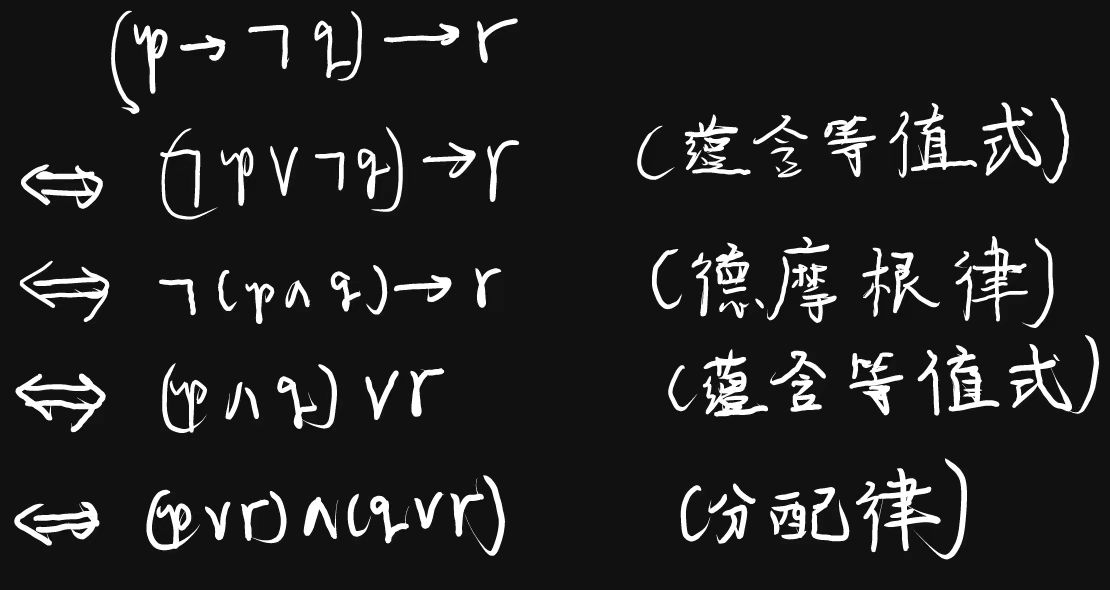 (p → ¬q) → r
⇔ (¬p ∨ ¬q) → r (蕴含等值式)
⇔ ¬(p ∧ q) → r (德摩根律)
⇔ (p ∧ q) ∨ r (蕴含等值式)
⇔ (p ∨ r) ∧ (q ∨ r) (分配律)